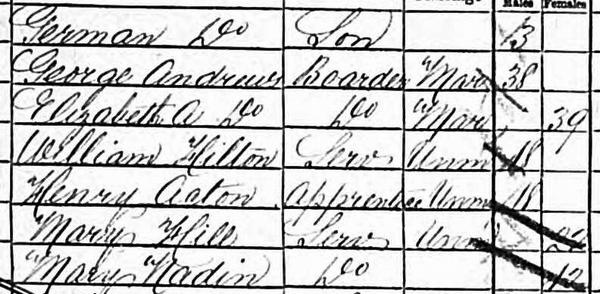 Males Females
German Do Son 13
George Andrews Boarder Mar 38
Elizabeth A Do Do Mar 39
William Hilton Serv Unm 18
Henry Acton Apprentice Unm 18
Mary Hill Serv Unm 22
Mary Nadin Do 12